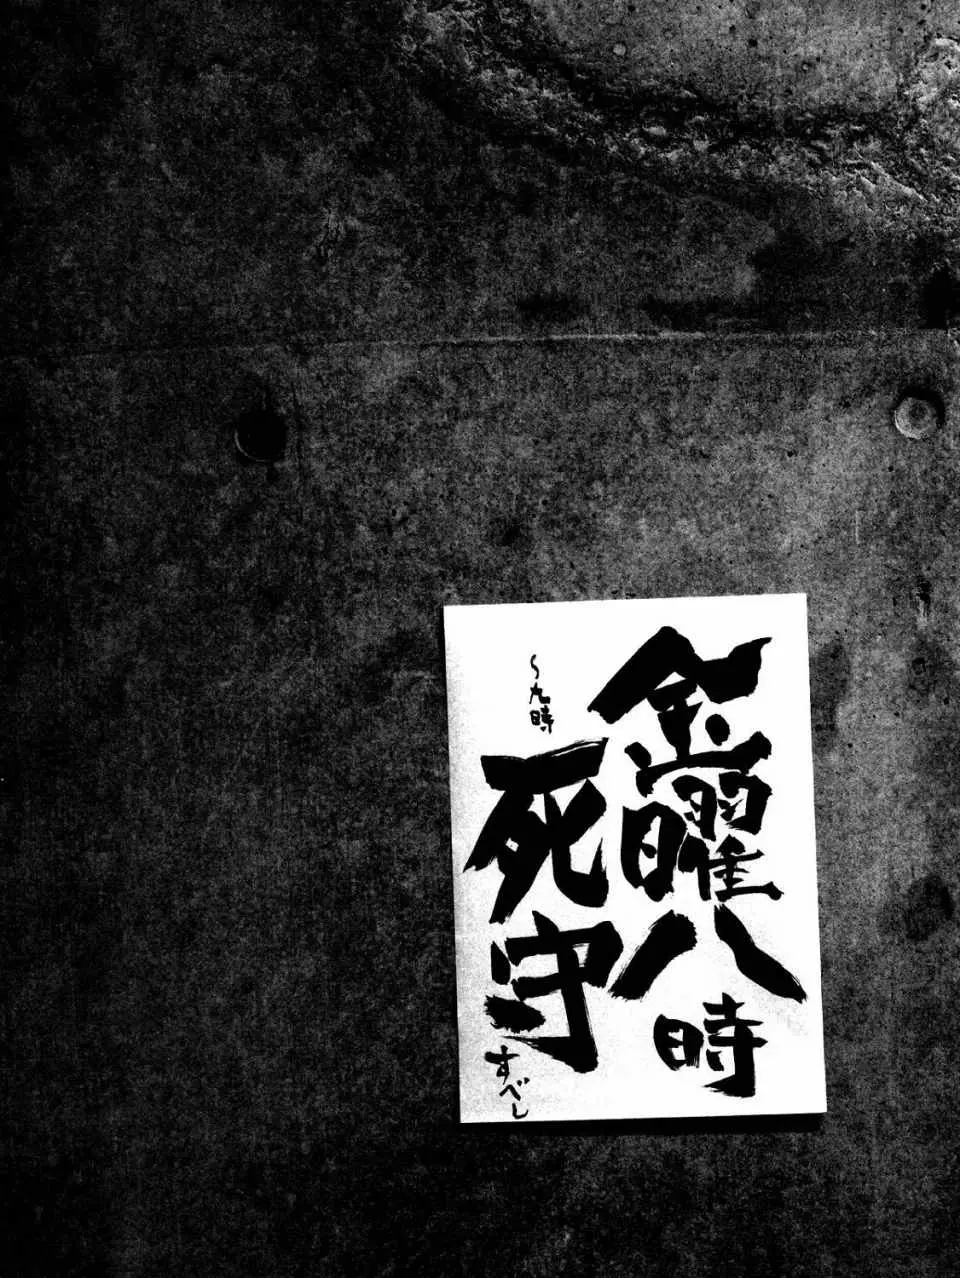 金曜八時
〜九時
死守
すべし